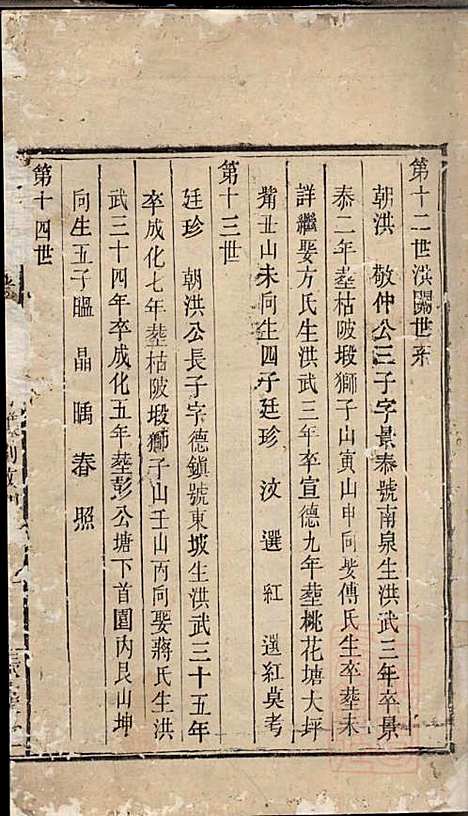 第十二世洪閞世系
朝洪　敬仲公三子字景泰號南泉生洪武三年卒景
泰二年塟枯陂塅獅子山寅山申向娶傅氏生卒塟未
詳繼娶方氏生洪武三年卒宣德九年塟桃花塘大坪
觜丑山未向生四子廷珍　汶　選　紅　選紅莫考
第十三世
廷珍　朝洪公長子字德鎮號東坡生洪武三十五年
卒成化七年塟枯陂塅獅子山壬山丙向娶蔣氏生洪
武三十四年卒成化五年塟彭公塘下首園內艮山坤
向生五子瞘　晶　晤　春　照
第十四世